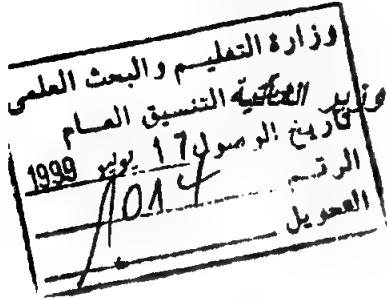 وزارة التعليم والبحث العلمي
التنسيق العام
تاريخ الوصول 17 يوليو 1999
الرقم
التحويل